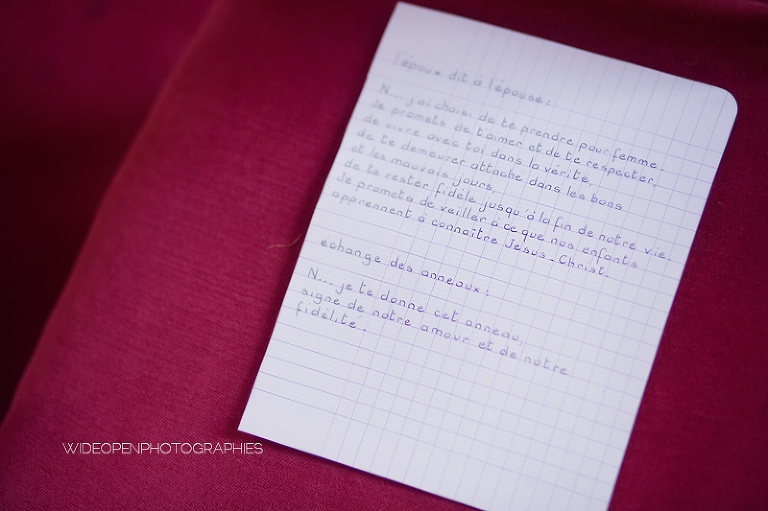 l'époux dit à l'épouse :
N... j'ai choisi de te prendre pour femme.
Je promets de t'aimer et de te respecter,
de vivre avec toi dans la vérite,
de te demeurer attache dans les bons
et les mauvais jours,
de te rester fidèle jusqu'à la fin de notre vie.
Je promets de veiller à ce que nos enfants
apprennent à connaître Jesus-Christ.
échange des anneaux :
N... je te donne cet anneau,
signe de notre amour et de notre
fidélité.
WIDEOPENPHOTOGRAPHIES